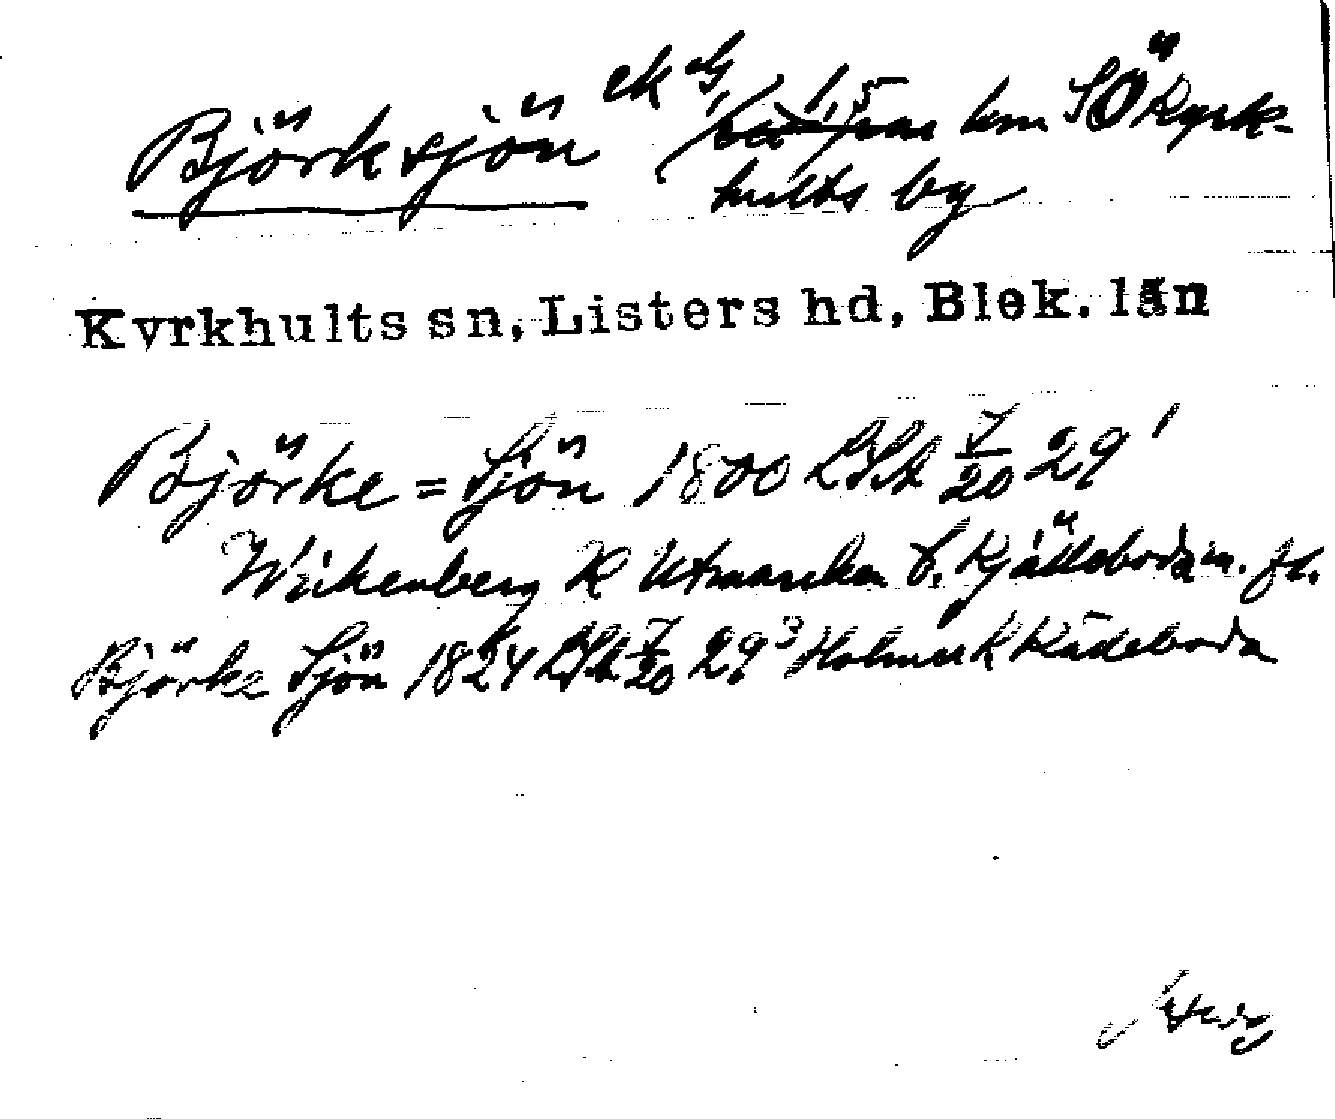 Björksjön ek G 1,5 km SÖ Kyrk-
hults by
Kyrkhults sn, Listers hd, Blek. län
Björke = Sjön 1800 LSA 7/20 29¹
Wickenberg K Utmarken t. Kjälleboda m. fl.
Björke Sjön 1824 LSA 7/20 29³ Holmer K Kådeboda